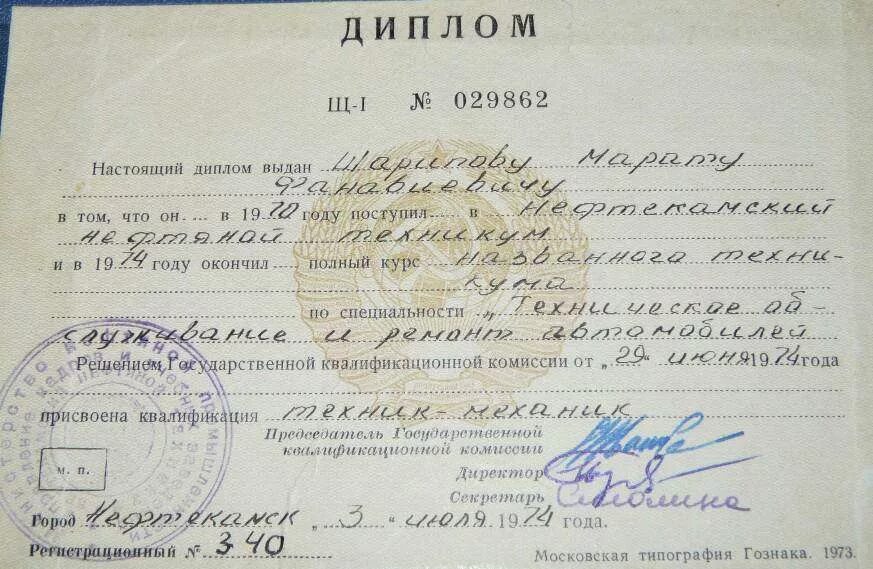 ДИПЛОМ
Щ-I № 029862
Настоящий диплом выдан Шарипову Марату
Фанавиевичу
в том, что он в 1970 году поступил в Нефтекамский
нефтяной техникум
и в 1974 году окончил полный курс названного техни-
кума
по специальности „Техническое об-
служивание и ремонт автомобилей
Решением Государственной квалификационной комиссии от „29“ июня 1974 года
присвоена квалификация техник-механик
Председатель Государственной
квалификационной комиссии
Директор
Секретарь
м. п.
Город Нефтекамск „3 июля 1974 года.
Регистрационный № 340
Московская типография Гознака. 1973.